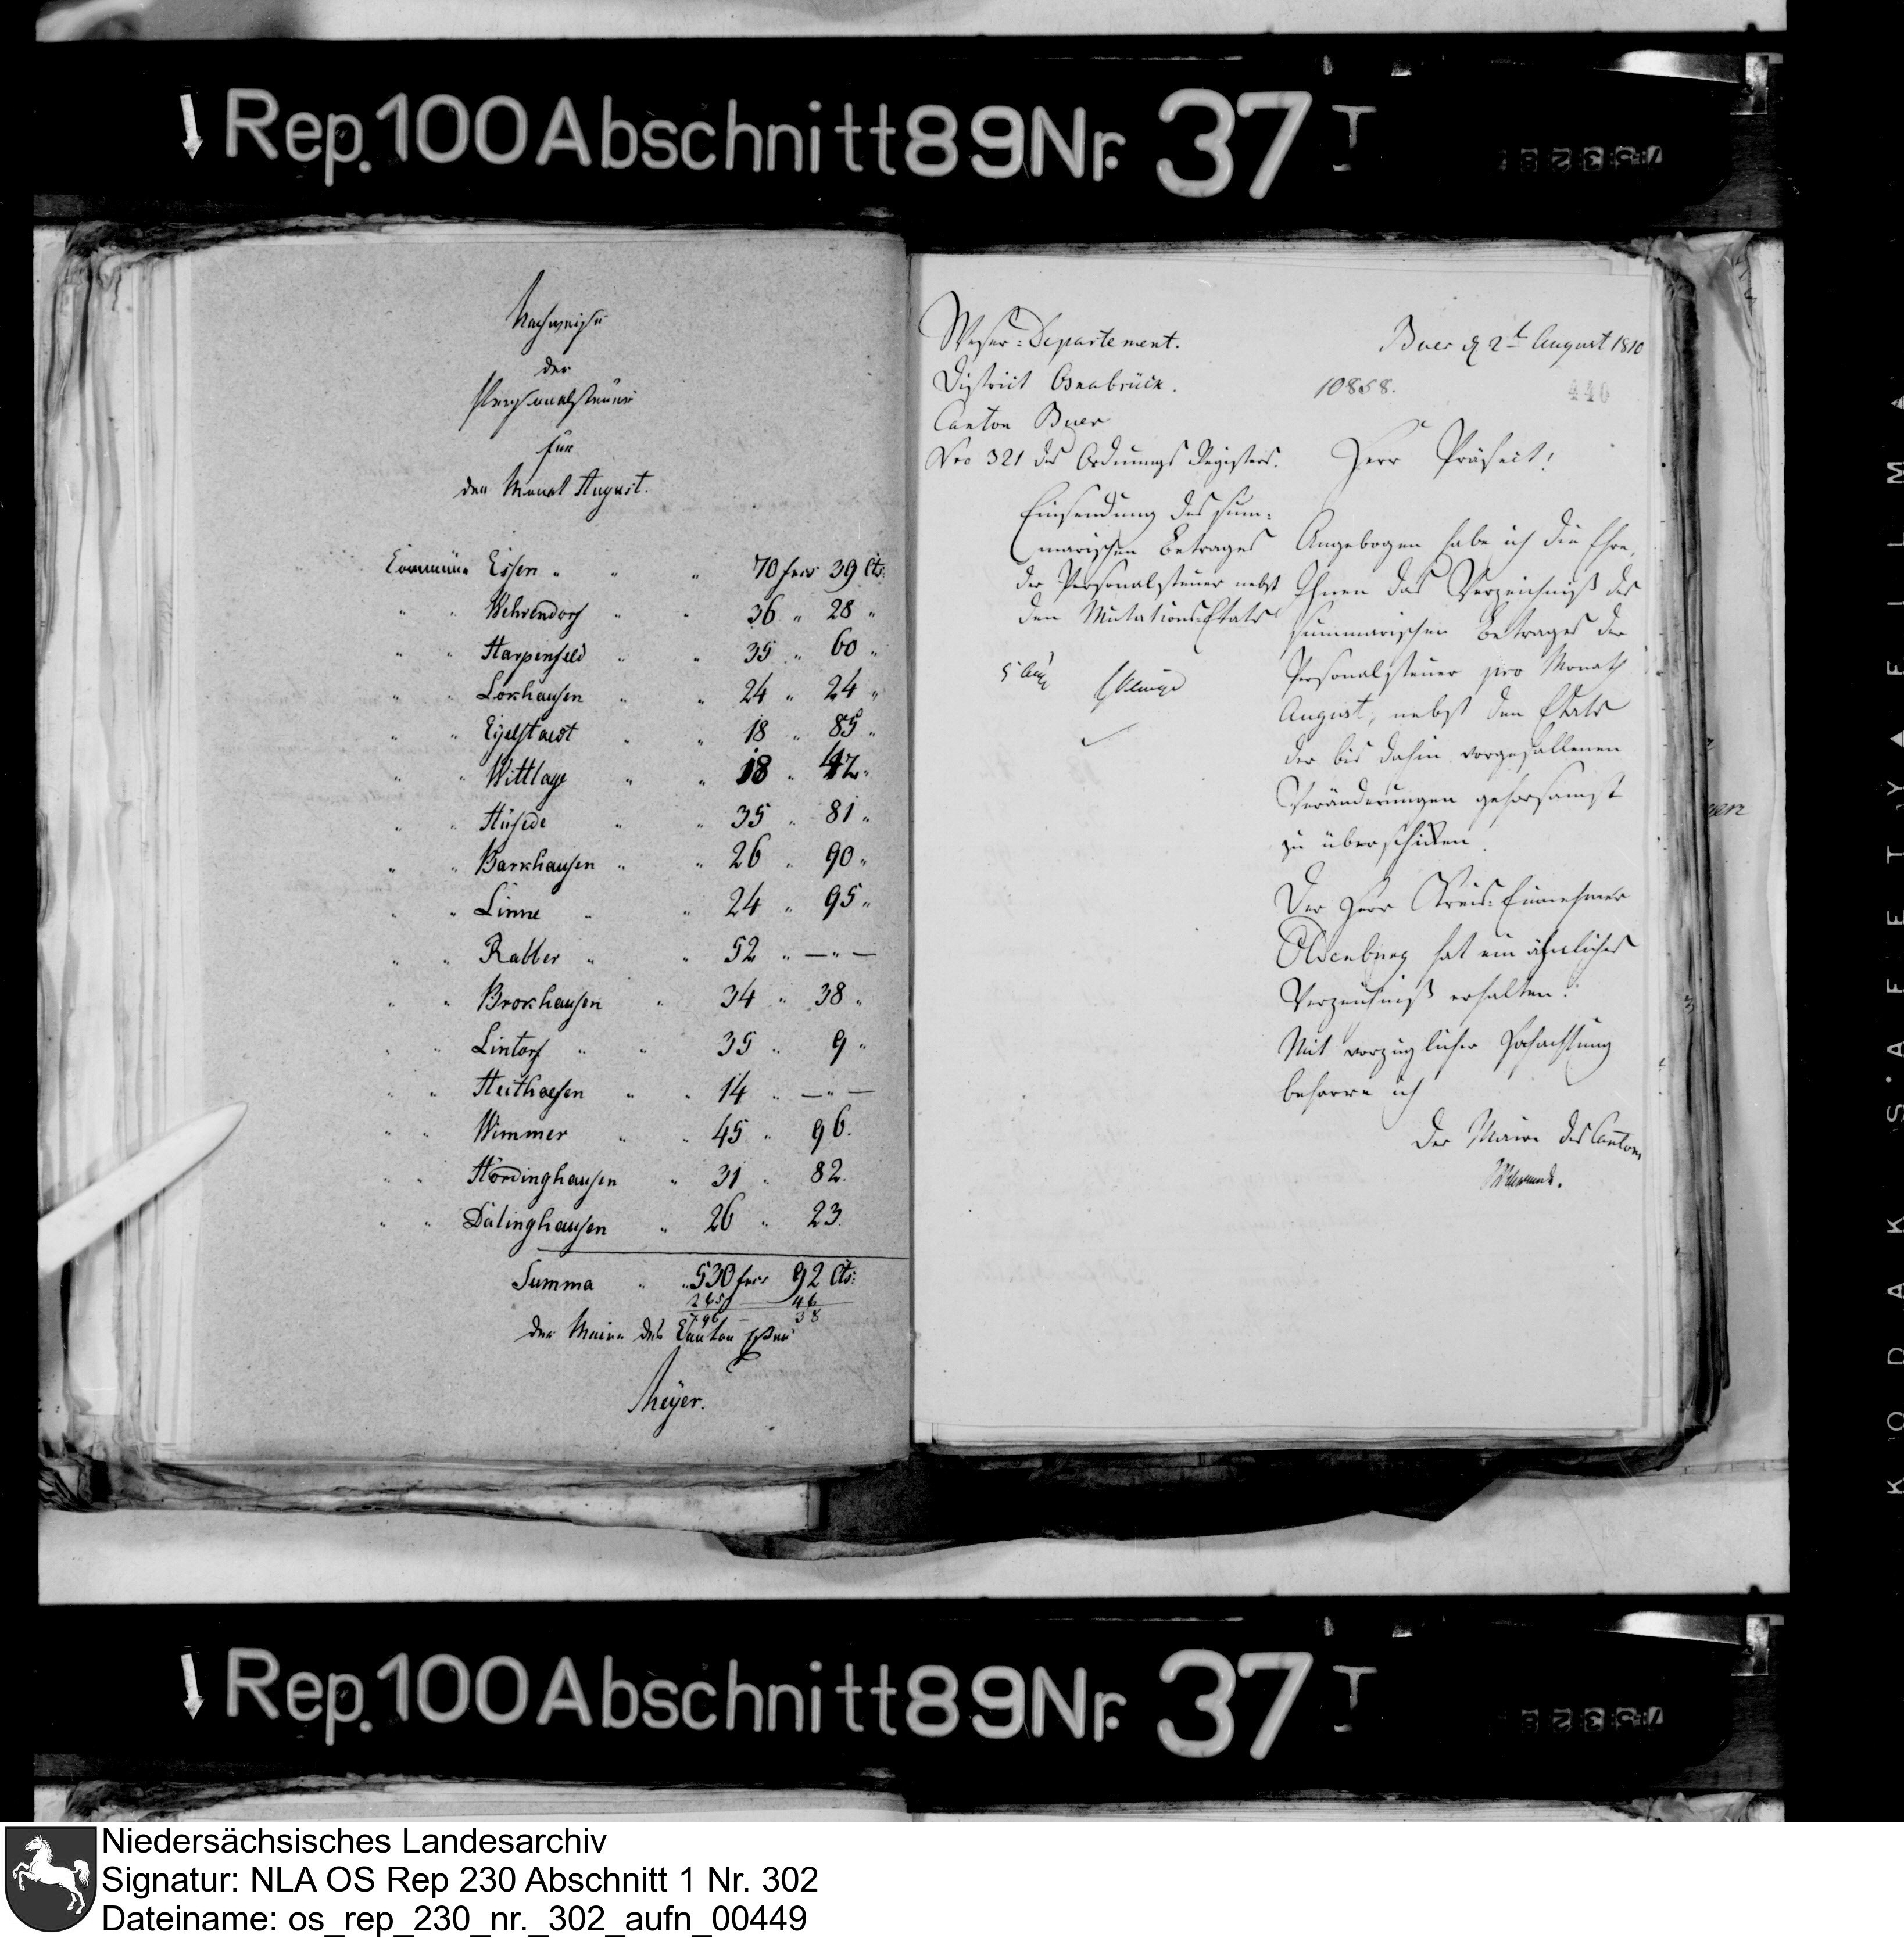 Rep. 100 Abschnitt 89 Nr. 37 I
Nachweise
der
Personalsteuer
für
den Monat August.
Commüne Essen " " " 70 frcs 39 Cts:
" " Wehrendorf " " 36 " 28 "
" " Harpenfeld " " 35 " 60 "
" " Lokhausen " " 24 " 24 "
" " Eielstaedt " " 18 " 85 "
" " Wittlage " " 18 " 42 "
" " Hüsede " " 35 " 81 "
" " Barkhausen " " 26 " 90 "
" " Linne " " 24 " 95 "
" " Rabber " " 52 " — " —
" " Brokhausen " 34 " 38 "
" " Lintorf " " 35 " 9 "
" " Heithoefen " " 14 " — " —
" " Wimmer " " 45 " 96.
" " Hördinghausen " 31 " 82.
" " Dälinghausen " 26 " 23.
Summa " " 530 frcs 92 Cts:
265 — 46
796 — 38
der Maire des Canton Essen
Meÿer.
Weser-Departement.
District Osnabrück.
Canton Buer
Nro 321 des Ordnungs Registers.
Einsendung des sum-
marischen Betrages
der Personalsteuer nebst
den Mutations-Etats
5 Aug
Buer d 2t August 1810
10858.
440
Herr Präfect!
Angebogen habe ich die Ehre,
Ihnen das Verzeichniß des
summarischen Betrages der
Personalsteuer pro Monath
August, nebst den Etats
der bis dahin vorgefallenen
Veränderungen gehorsamst
zu überschicken.
Der Herr Kreis-Einnehmer
Oldenburg hat ein ähnliches
Verzeichniß erhalten.
Mit vorzüglicher Hochachtung
beharre ich
Der Maire des Cantons
Rep. 100 Abschnitt 89 Nr. 37 I
KODAK SAFETY FILM
Niedersächsisches Landesarchiv
Signatur: NLA OS Rep 230 Abschnitt 1 Nr. 302
Dateiname: os_rep_230_nr._302_aufn_00449